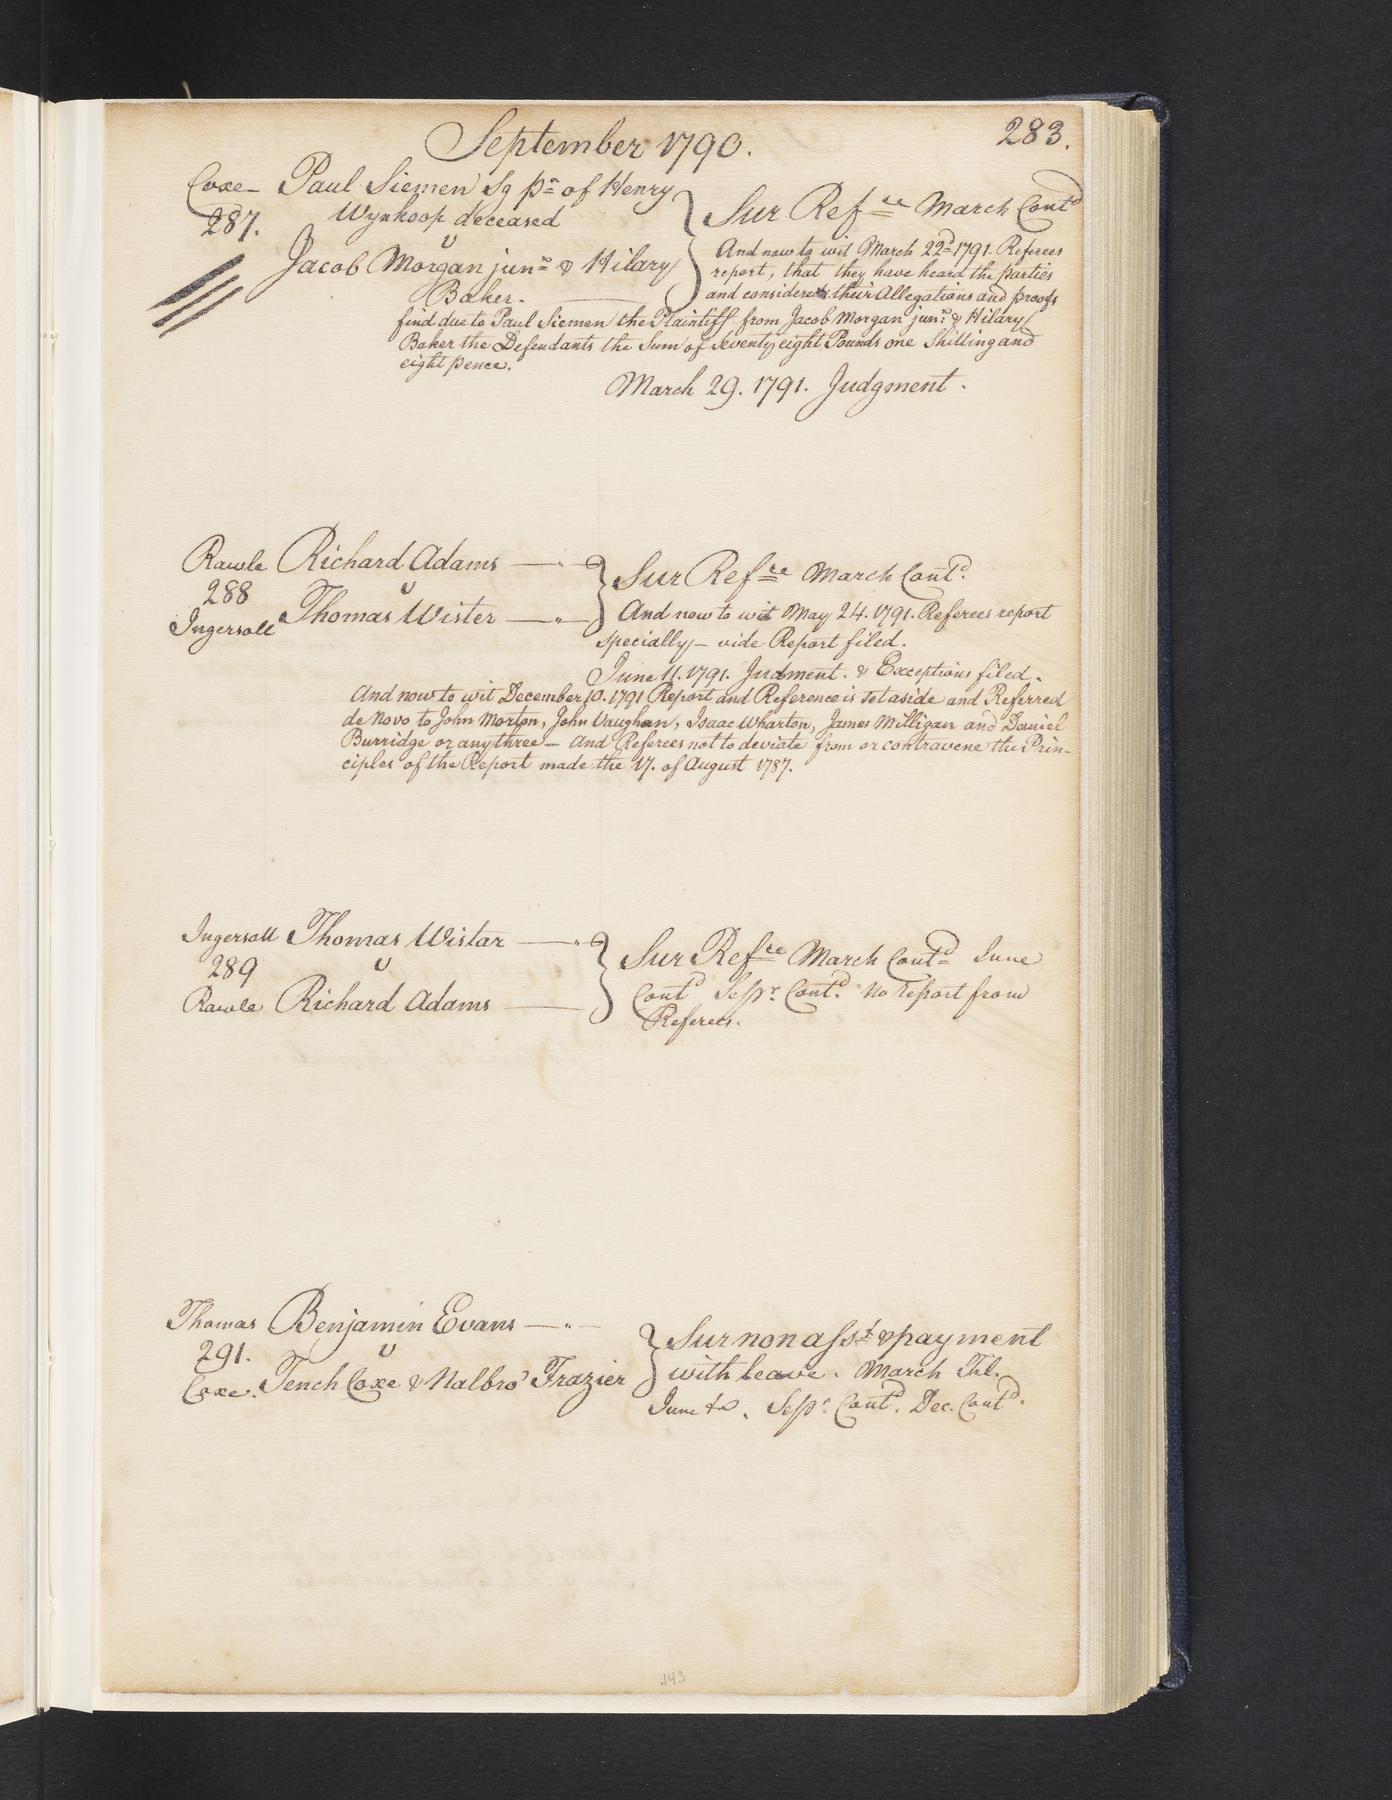 283.
September 1790.
Coxe— Paul Siemen Sg pr of Henry
287. Wynkoop deceased
v
Jacob Morgan junr & Hilary
Baker.
Sur Refce March Contd
And now to wit March 22d 1791. Referees
report, that they have heard the parties
and considered their Allegations and proofs
find due to Paul Siemen the Plaintiff from Jacob Morgan junr. & Hilary
Baker the Defendants the Sum of Seventy eight Pounds one Shilling and
eight pence.
March 29. 1791. Judgment.
Rawle Richard Adams
288 v
Ingersoll Thomas Wister
Sur Refce March Contd.
And now to wit May 24. 1791. Referees report
specially— vide Report filed.
June 11. 1791. Judment. & Exceptions filed.
And now to wit December 10. 1791 Report and Reference is set aside and Referred
de Novo to John Morton, John Vaughan, Isaac Wharton, James Milligan and Daniel
Burridge or any three— And Referees not to deviate from or contravene the Prin-
ciples of the Report made the 17. of August 1787.
Ingersoll Thomas Wistar
289 v
Rawle Richard Adams
Sur Refce March Contd June
Contd Sepr. Contd. No report from
Referees.
Thomas Benjamin Evans
291. v
Coxe. Tench Coxe & Nalbro' Frazier
Sur non asst & payment
with leave. March Tvl.
June do. Sepr Contd. Dec. Contd.
143